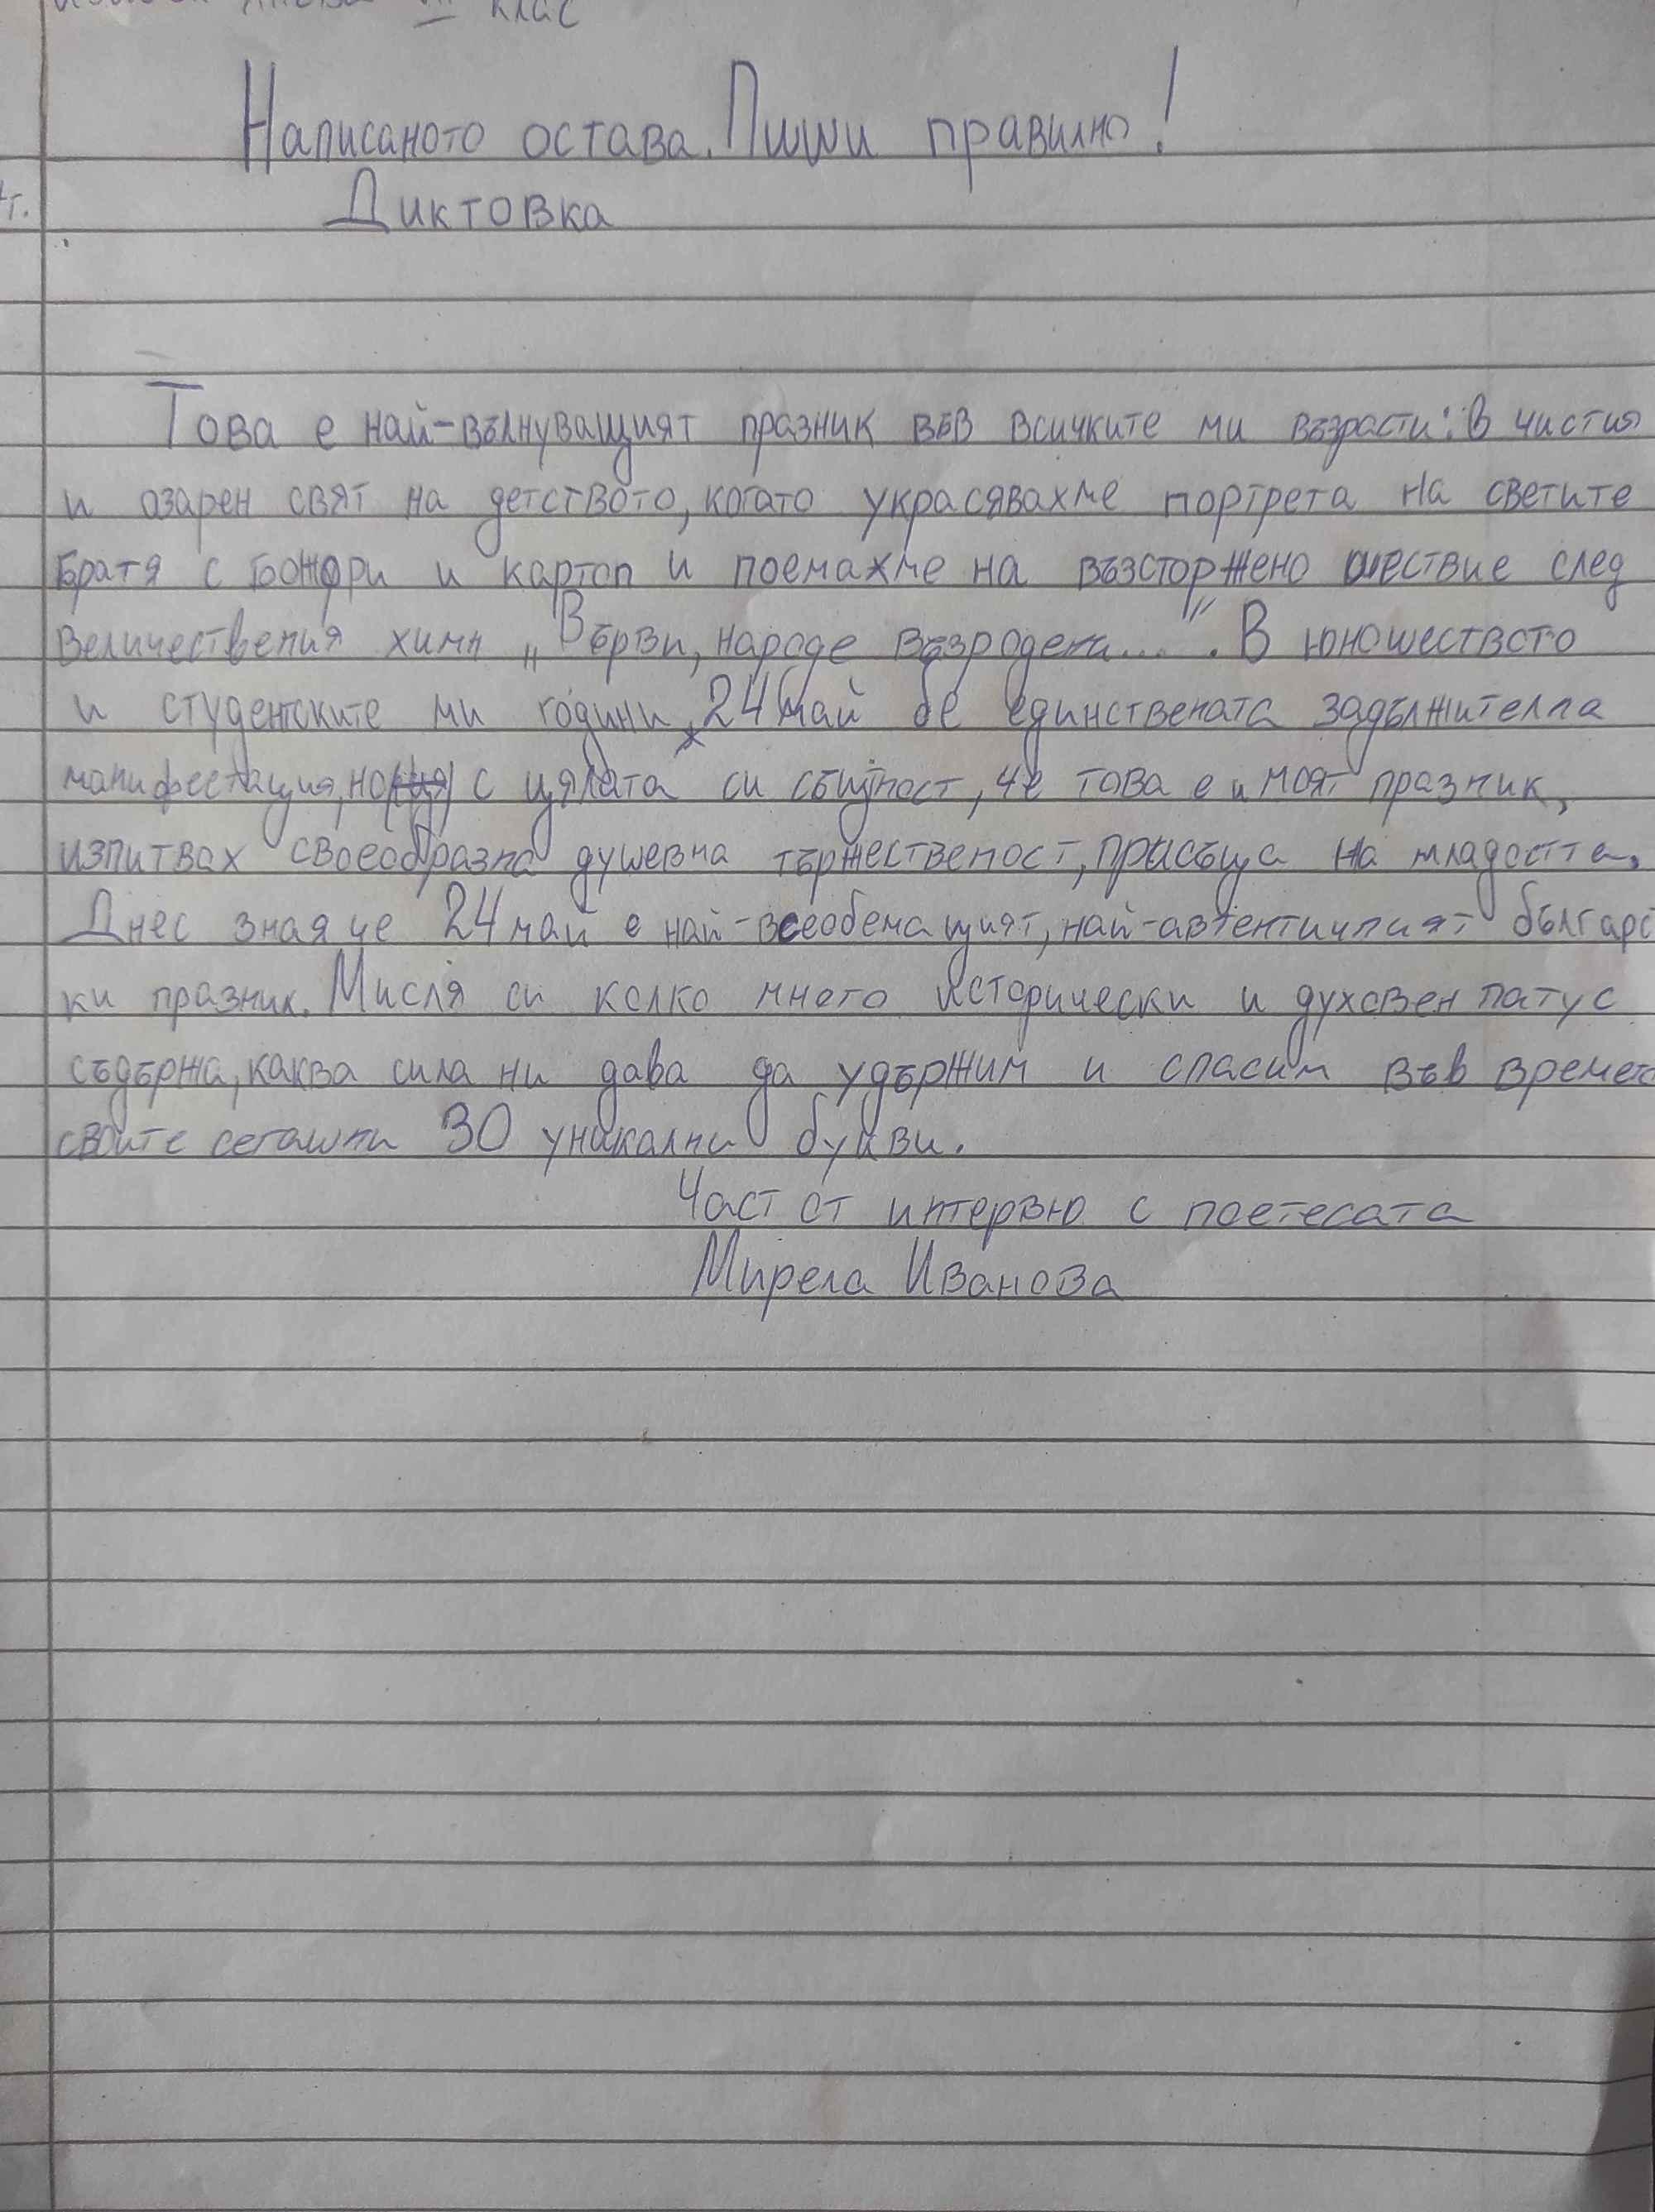 клас
Написаното остава. Пиши правилно!
т.
Диктовка
Това е най-вълнуващият празник във всичките ми възрасти: в чистия
и озарен свят на детството, когато украсявахме портрета на светите
братя с божори и картоп и поемахме на възсторжено шествие след
величествения химн „Върви, народе възродени...". В юношеството
и студентските ми години, 24 май бе единствената задължителна
манифестация, но с цялата си същност, че това е и моят празник,
изпитвах своеобразна душевна тържественост, присъща на младостта.
Днес зная че 24 май е най-всеобемащият, най-автентичният българс
ки празник. Мисля си колко много исторически и духовен патус
съдържа, каква сила ни дава да удържим и спасим във времето
своите сегашни 30 уникални букви.
Част от интервю с поетесата
Мирела Иванова